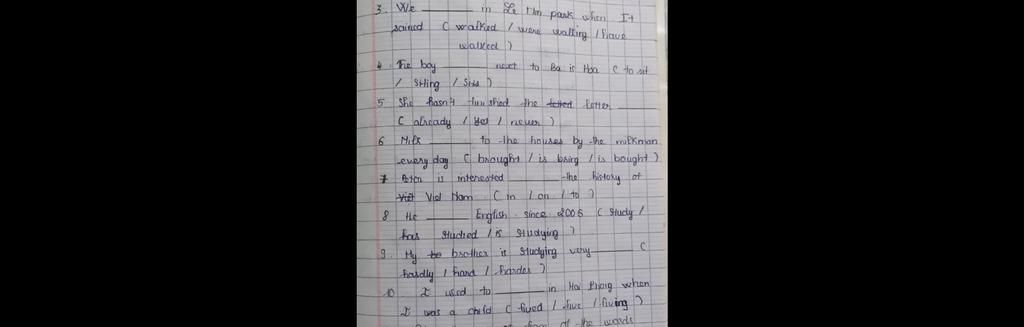 3. We ______ in Le Nin park when It
rained ( walked / were walking / have
walked )
4 The boy ______ next to Ba is Hoa ( to sit
/ sitting / sits )
5 She hasn't finished the letter ______
( already / yet / never )
6 Milk ______ to the houses by the milkman
every day ( brought / is bring / is bought )
7 is interested ______ the history of
Viet Viet Nam ( in / on / to )
8 He ______ English since 2006 ( Study /
has studied / is studying )
9. My brother is studying very ______ (
hardly / hard / harder )
10 I used to ______ in Hai Phong when
I was a child ( lived / live / living )
of the words